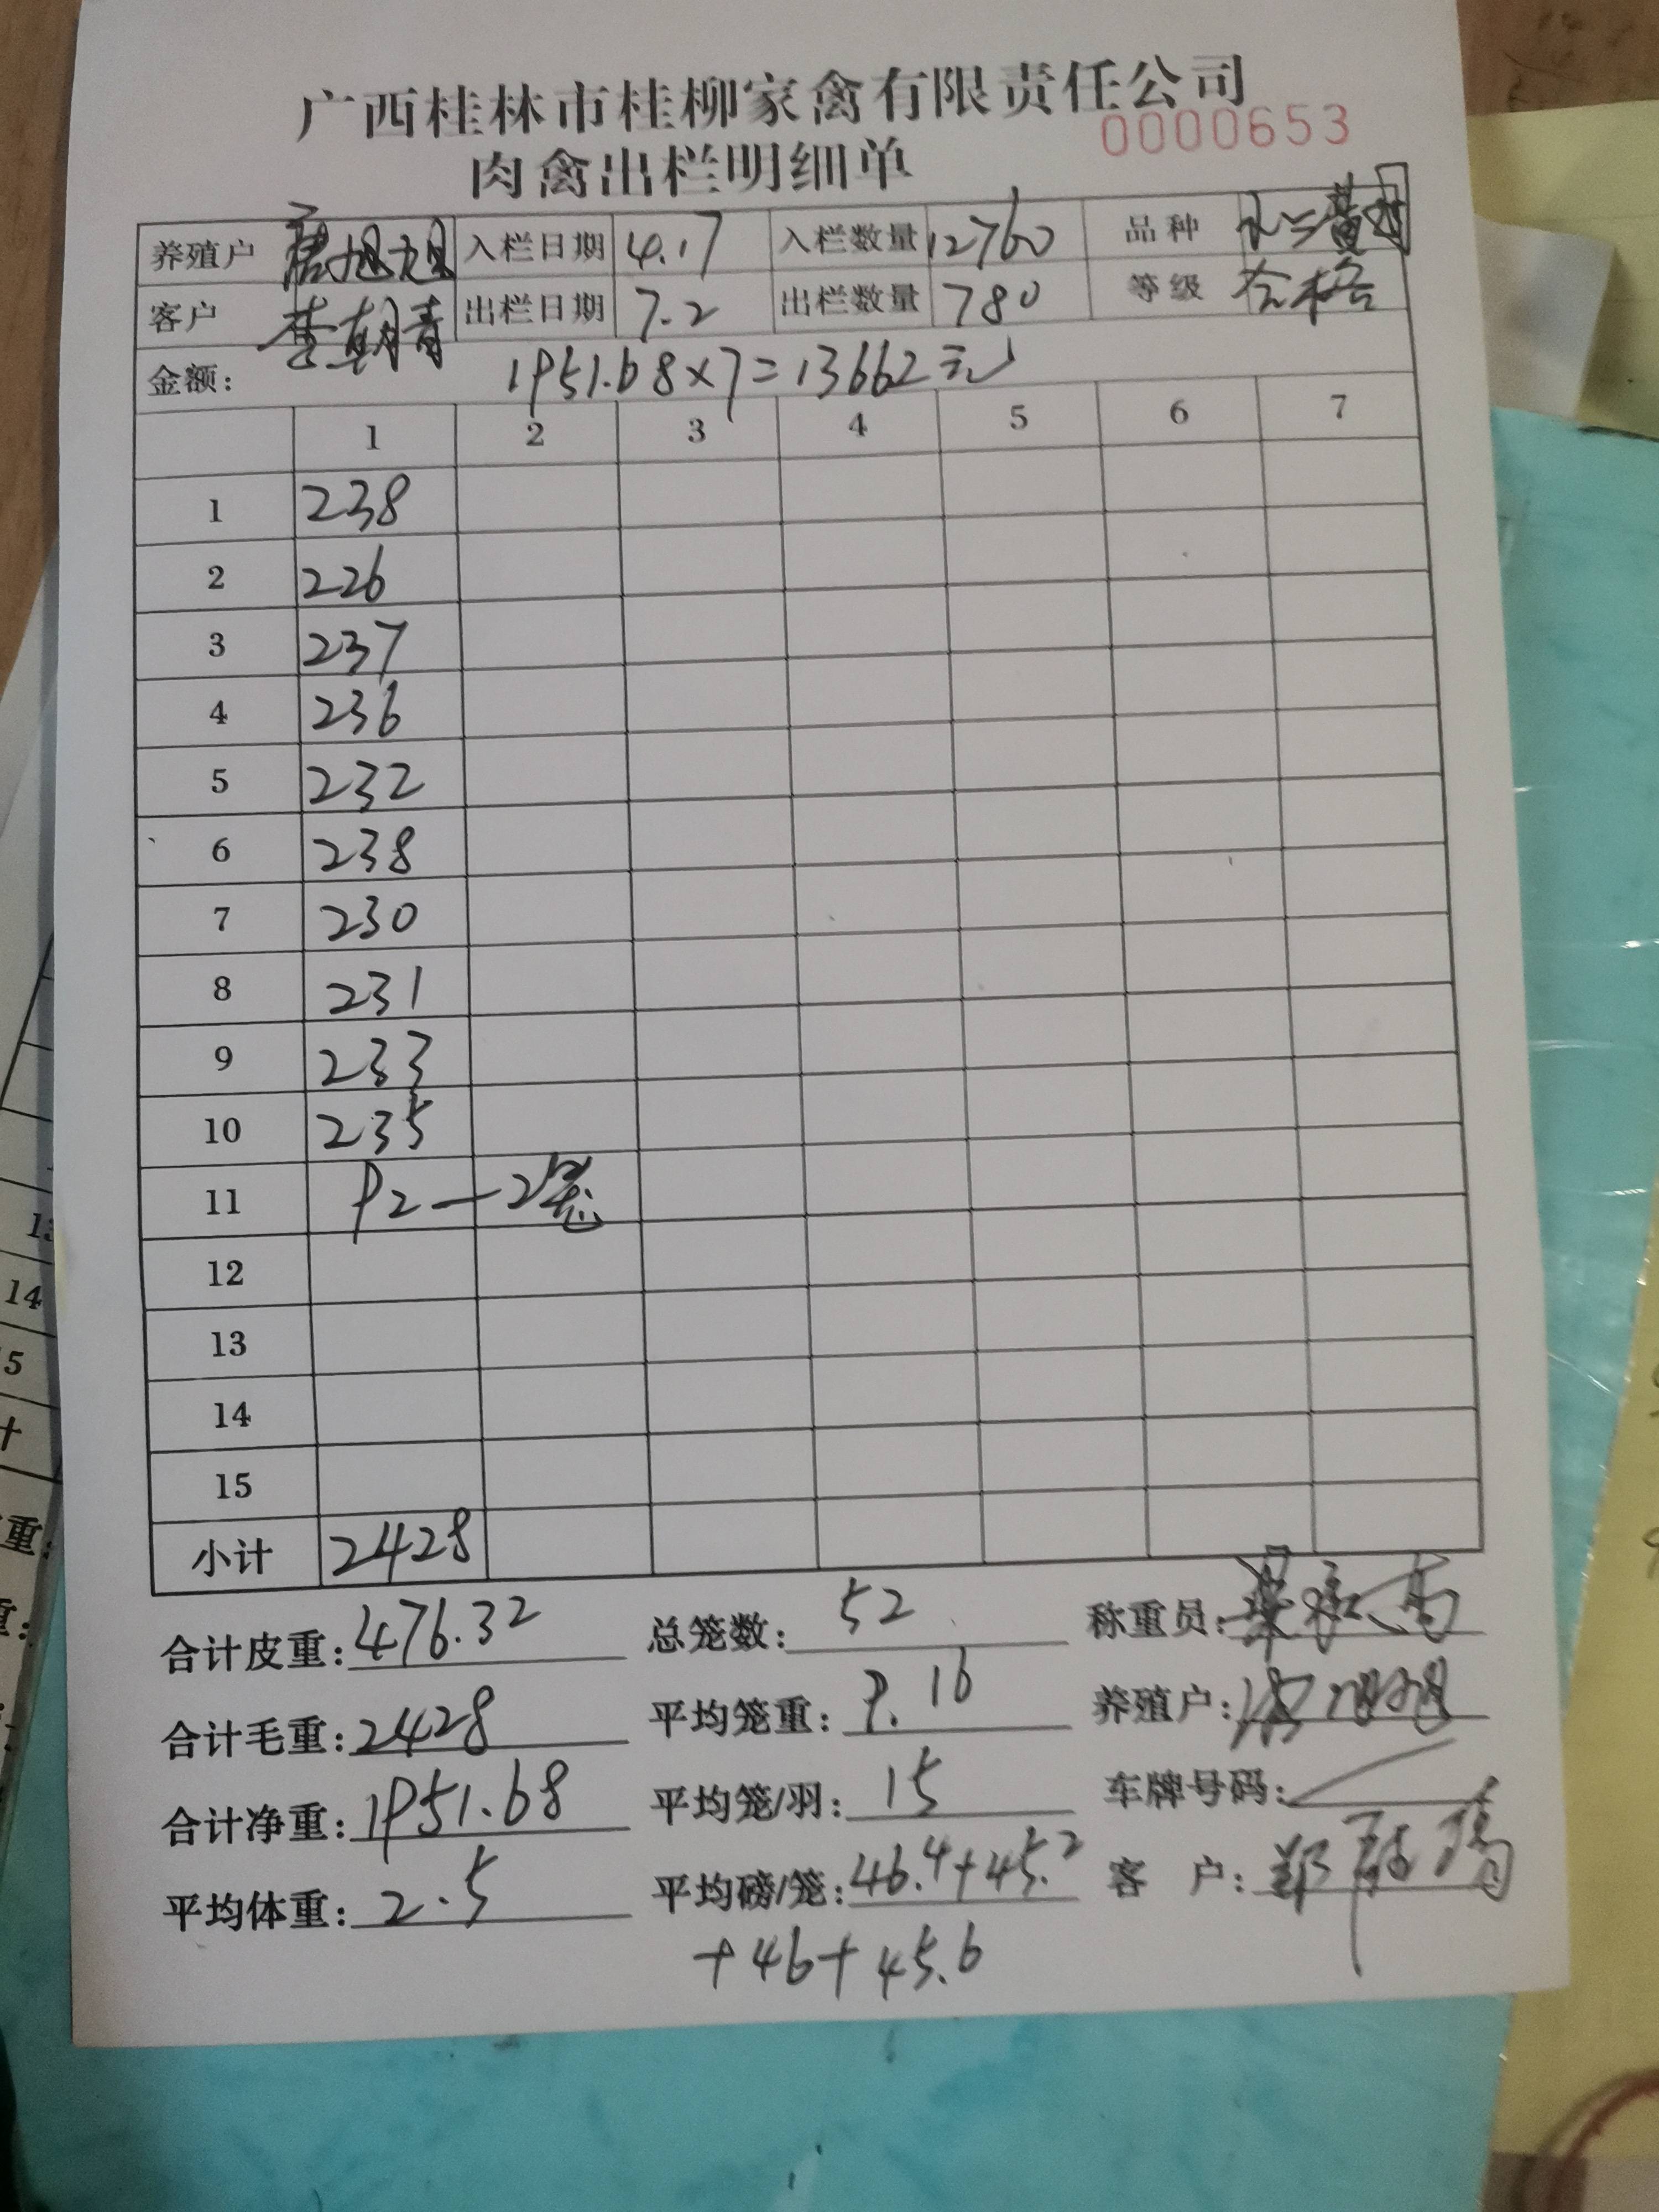 广西桂林市桂柳家禽有限责任公司
0000653
肉禽出栏明细单
养殖户 入栏日期 4.17 入栏数量 12760 品种
客户 李朝青 出栏日期 7.2 出栏数量 780 等级 合格
金额: 1951.68×7=13662元
1 2 3 4 5 6 7
1 238
2 226
3 237
4 236
5 232
6 238
7 230
8 231
9 233
10 235
11 92—2笼
12
13
14
15
小计 2428
合计皮重: 476.32 总笼数: 52 称重员:
合计毛重: 2428 平均笼重: 9.16 养殖户:
合计净重: 1951.68 平均笼/羽: 15 车牌号码:
平均体重: 2.5 平均磅/笼: 46.4+45.2 客户:
+46+45.6